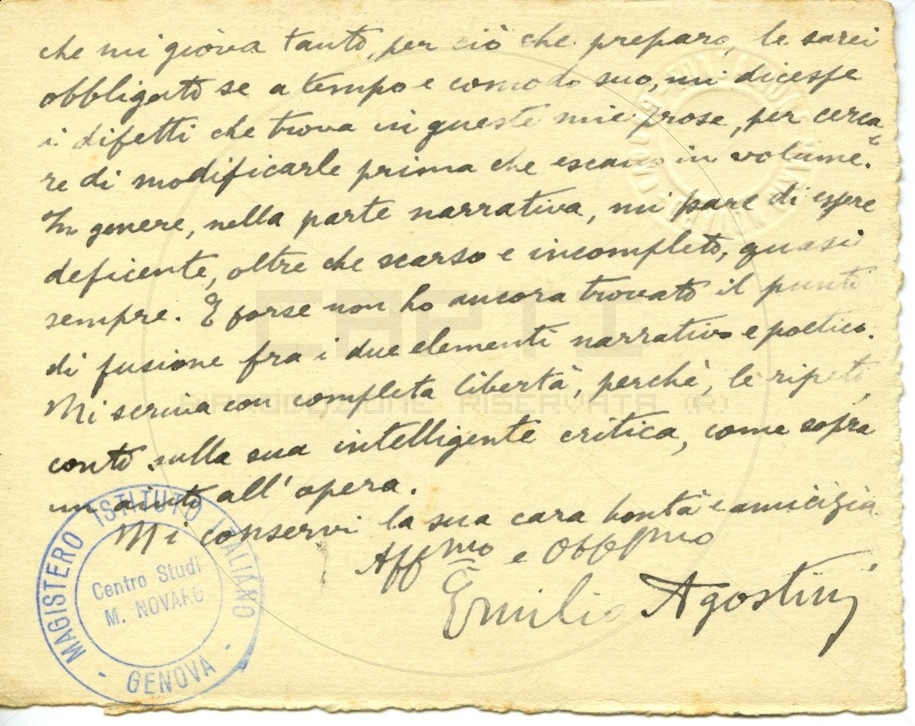 che mi giova tanto, per ciò che preparo, le sarei
obbligato se a tempo e comodo suo, mi dicesse
i difetti che trova in queste mie prose, per cerca=
re di modificarle prima che escano in volume.
In genere, nella parte narrativa, mi pare di essere
deficente, oltre che scarso e incompleto, quasi
sempre. E forse non ho ancora trovato il punto
di fusione fra i due elementi narrativo e poetico.
Mi scriva con completa libertà, perchè, le ripeto,
conto sulla sua intelligente critica, come sopra
un aiuto all'opera.
Mi conservi la sua cara bontà e amicizia
Affmo e Obblmo
Emilio Agostini
MAGISTERO ISTITUTO ITALIANO
Centro Studi
M. NOVARO
- GENOVA -
CAPTI
RIPRODUZIONE RISERVATA (R)